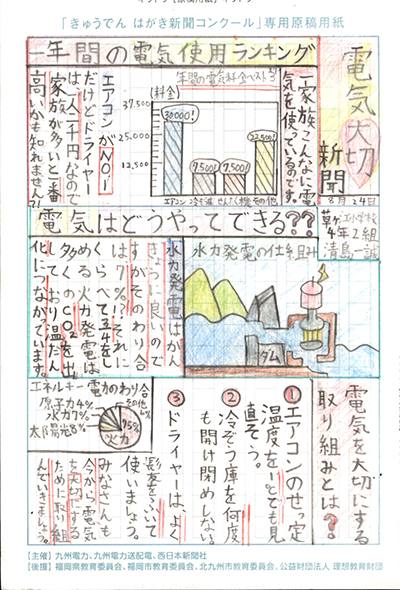 「きゅうでん はがき新聞コンクール」専用原稿用紙
電気大切
新聞
8月24日
草ヶ江小学校
4年2組
清島一誠
一年間の電気使用ランキング
一家族こんなに電
気を使っているのです。
年間の電気料金ベスト5
(料金)
37,500
25,000
12,500
30000!
7,500!
7,500!
22,500!
エアコン
冷ぞう庫
せんたく機
その他
エアコンがNO1
だけどドライヤー
は、一人二千円なので
家族が多いと一番
高いかも知れません?!
電気はどうやってできる??
水力発電の仕組み
ダム
水力発電はかん
きょうに良いので
すがそのわり合
は7%!?それに
くらべて34をし
める火力発電は
多くのCO2を出
しており温だん
化につながっています。
電気を大切にする
取り組みとは?
①エアコンのせっ定
温度を1℃でも見
直そう。
②冷ぞう庫を何度
も開け閉めしない。
③ドライヤーは、よく
髪をふいて
使いましょう。
みなさんも
今から電気
を大切にする
ために取り組
んでいきましょう。
エネルギー電力のわり合
原子力4%
水力7%
太陽光8%
その他6%
75%
火力
【主催】九州電力、九州電力送配電、西日本新聞社
【後援】福岡県教育委員会、福岡市教育委員会、北九州市教育委員会、公益財団法人 理想教育財団